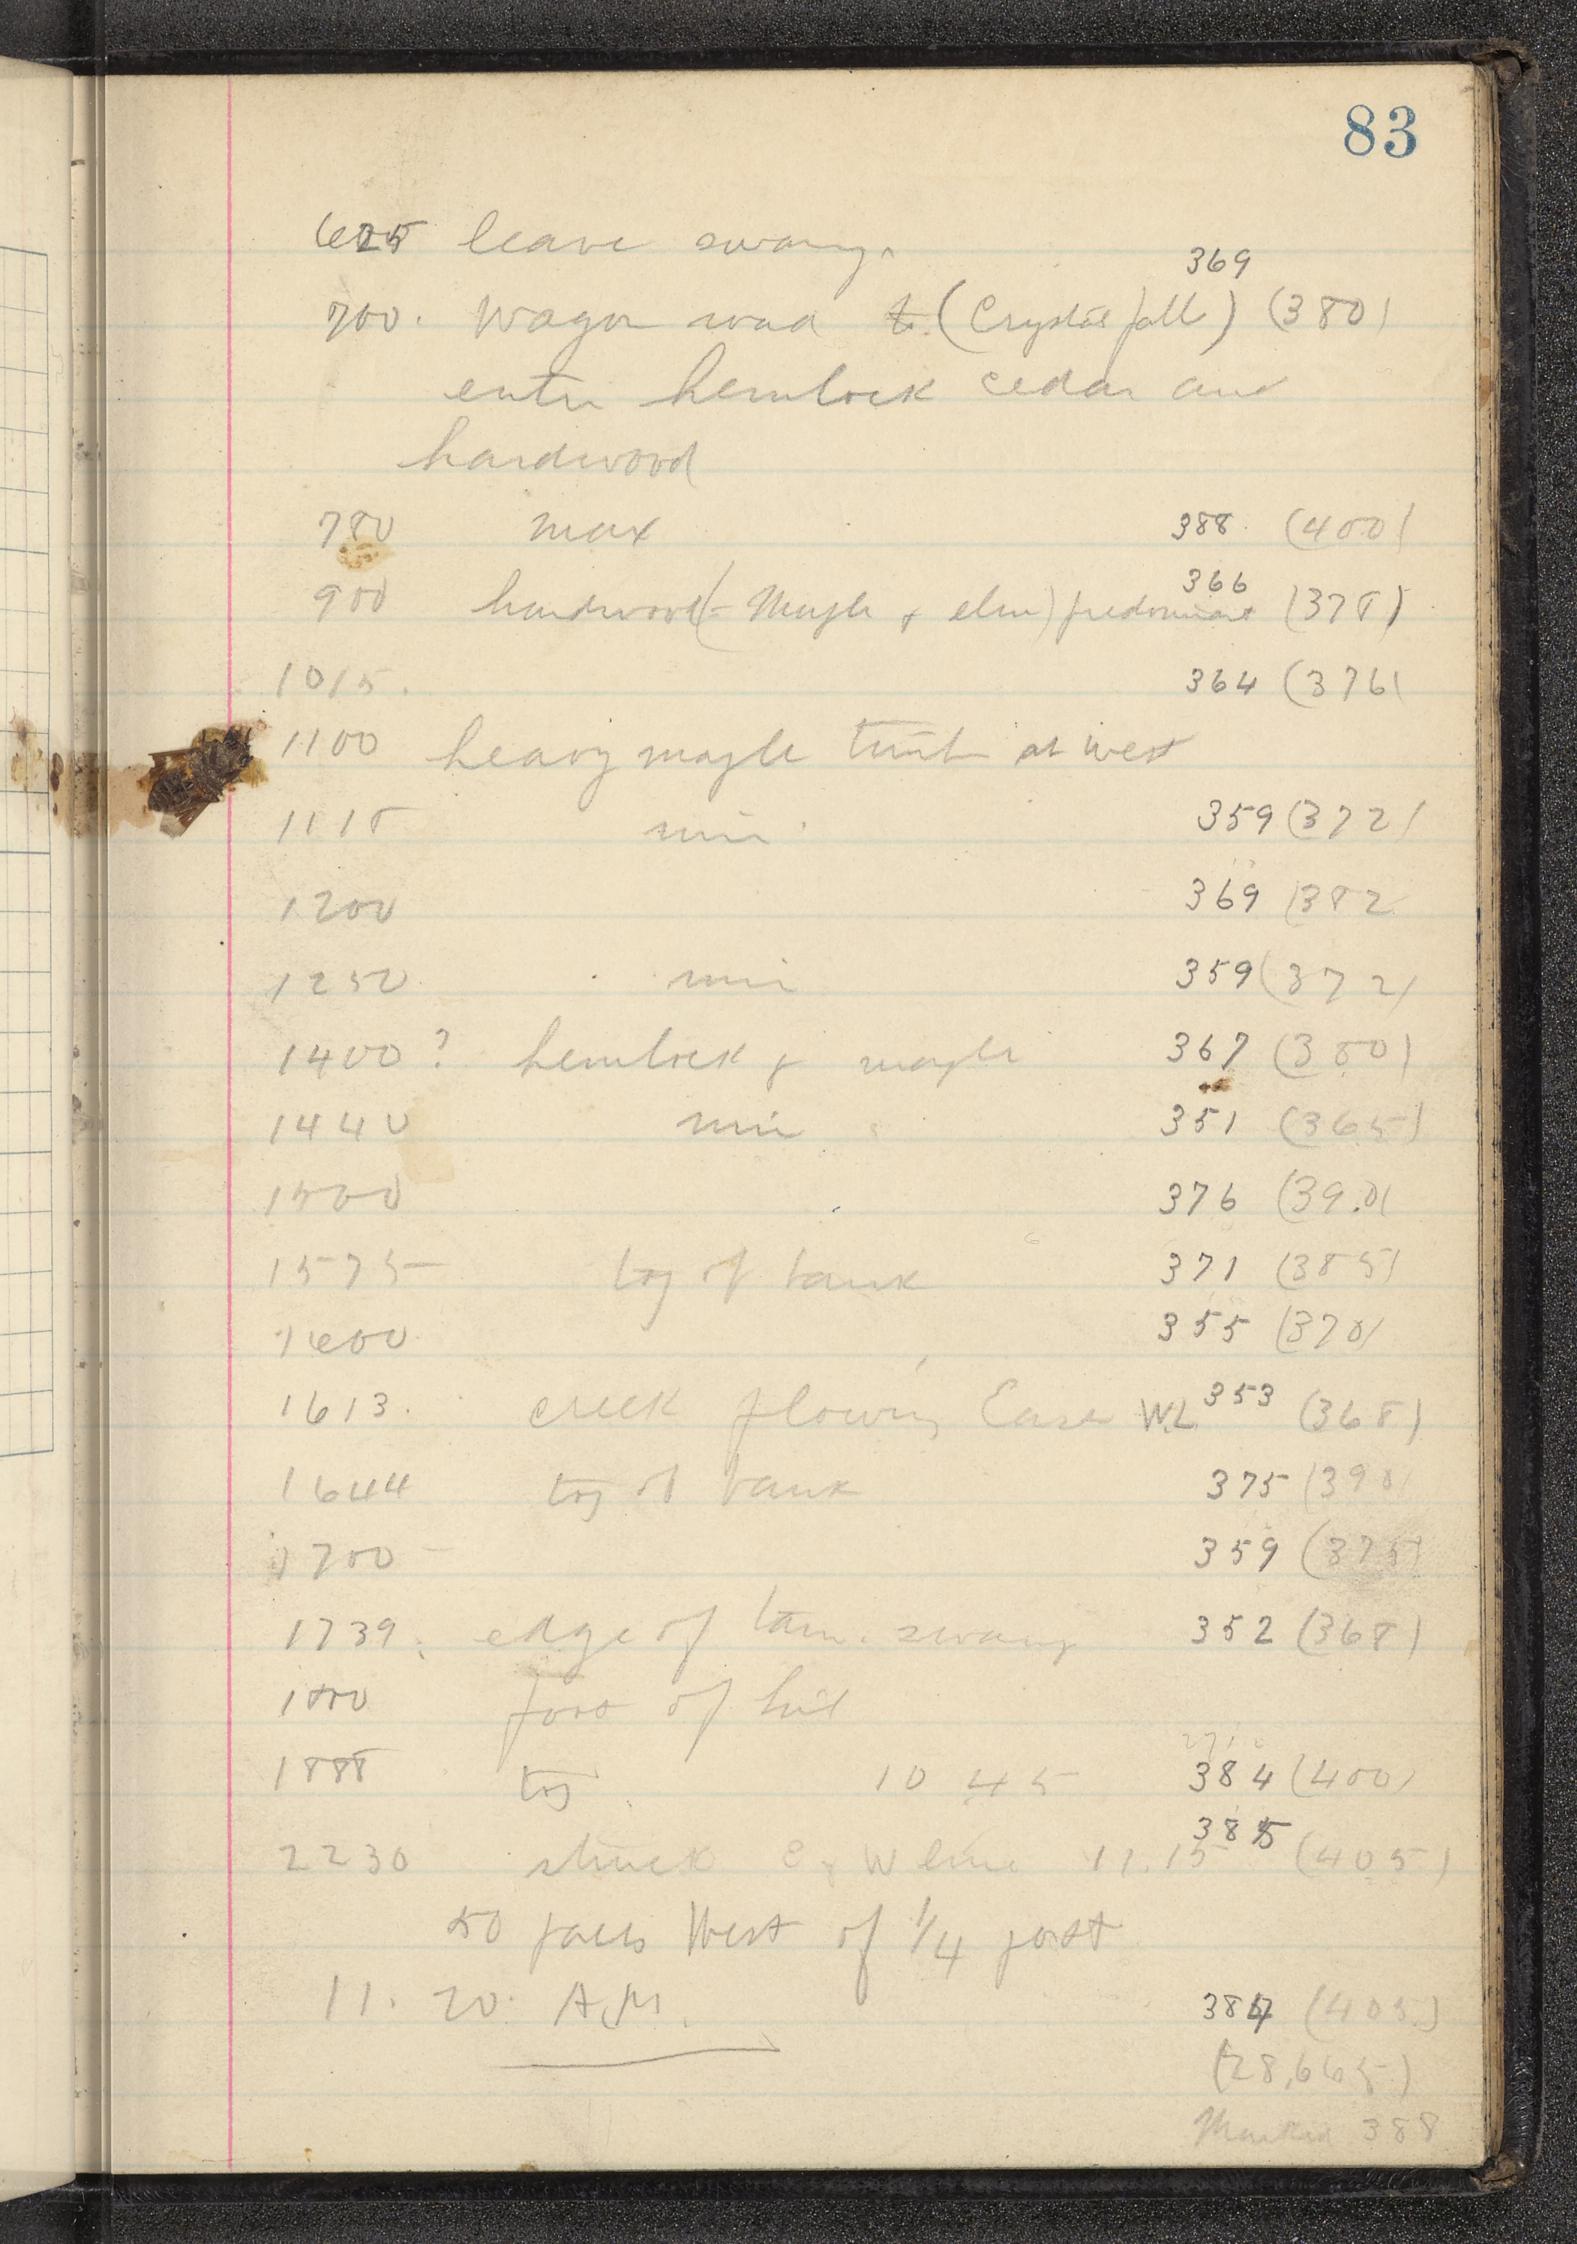 83
625 leave swamp.
369
700. Wagon road to (Crystal falls) (380)
enter hemlock cedar and
hardwood
780 max 388 (400)
366
900 hardwood (- Maple & elm) predominant (378)
1015. 364 (376)
1100 heavy maple timber at west
1118 min 359 (372)
1200 369 (382
1250 min 359 (372)
1400? hemlock & maple 367 (380)
1440 min 351 (365)
1500 376 (390)
1575 top of bank 371 (385)
1600 355 (370)
1613. creek flowing East W.L 353 (368)
1644 top of bank 375 (390)
1700 359 (375)
1739. edge of tam. swamp 352 (368)
1800 foot of hill
1888 top 10 45 384 (400)
385
2230 struck E & W line 11.15 (405)
50 paces West of 1/4 post
11. 20. A.M. 384 (405)
(28,665)
Marked 388